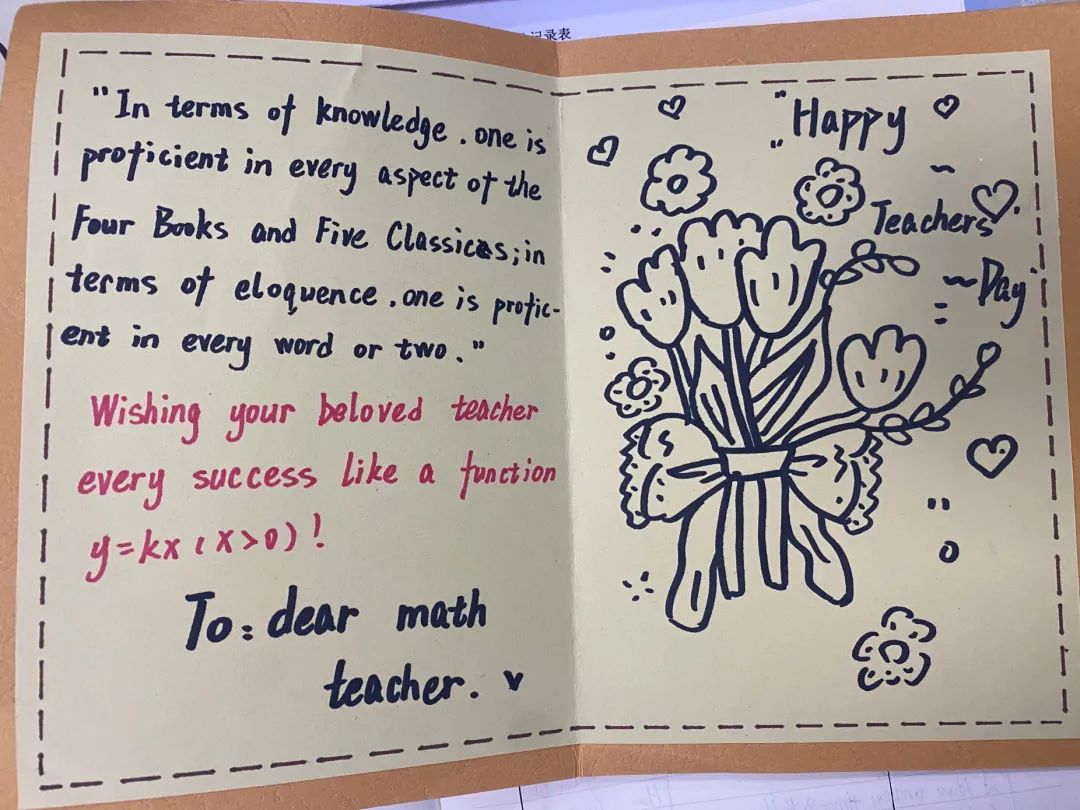 记录表
"In terms of knowledge .one is
proficient in every aspect of the
Four Books and Five Classices;in
terms of eloquence .one is profic-
ent in every word or two."
Wishing your beloved teacher
every success like a function
y=kx(x>0)!
To: dear math
teacher.
"Happy
~
Teachers
~Day"